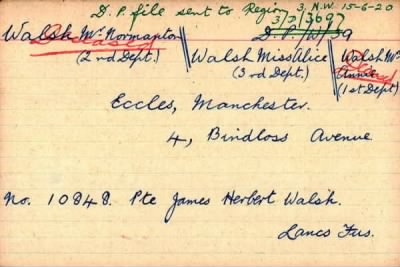 D.P. file sent to Region 3. N.W. 15-6-20
3/J/3697
Walsh Mr Normanton Walsh Miss Alice Walsh Mrs
Deceased D.P./W/39
(2nd Dept.) (3rd Dept.) Annie
(1st Dept)
Eccles, Manchester.
4, Bindloss Avenue
No. 10848. Pte James Herbert Walsh.
Lancs Fus.